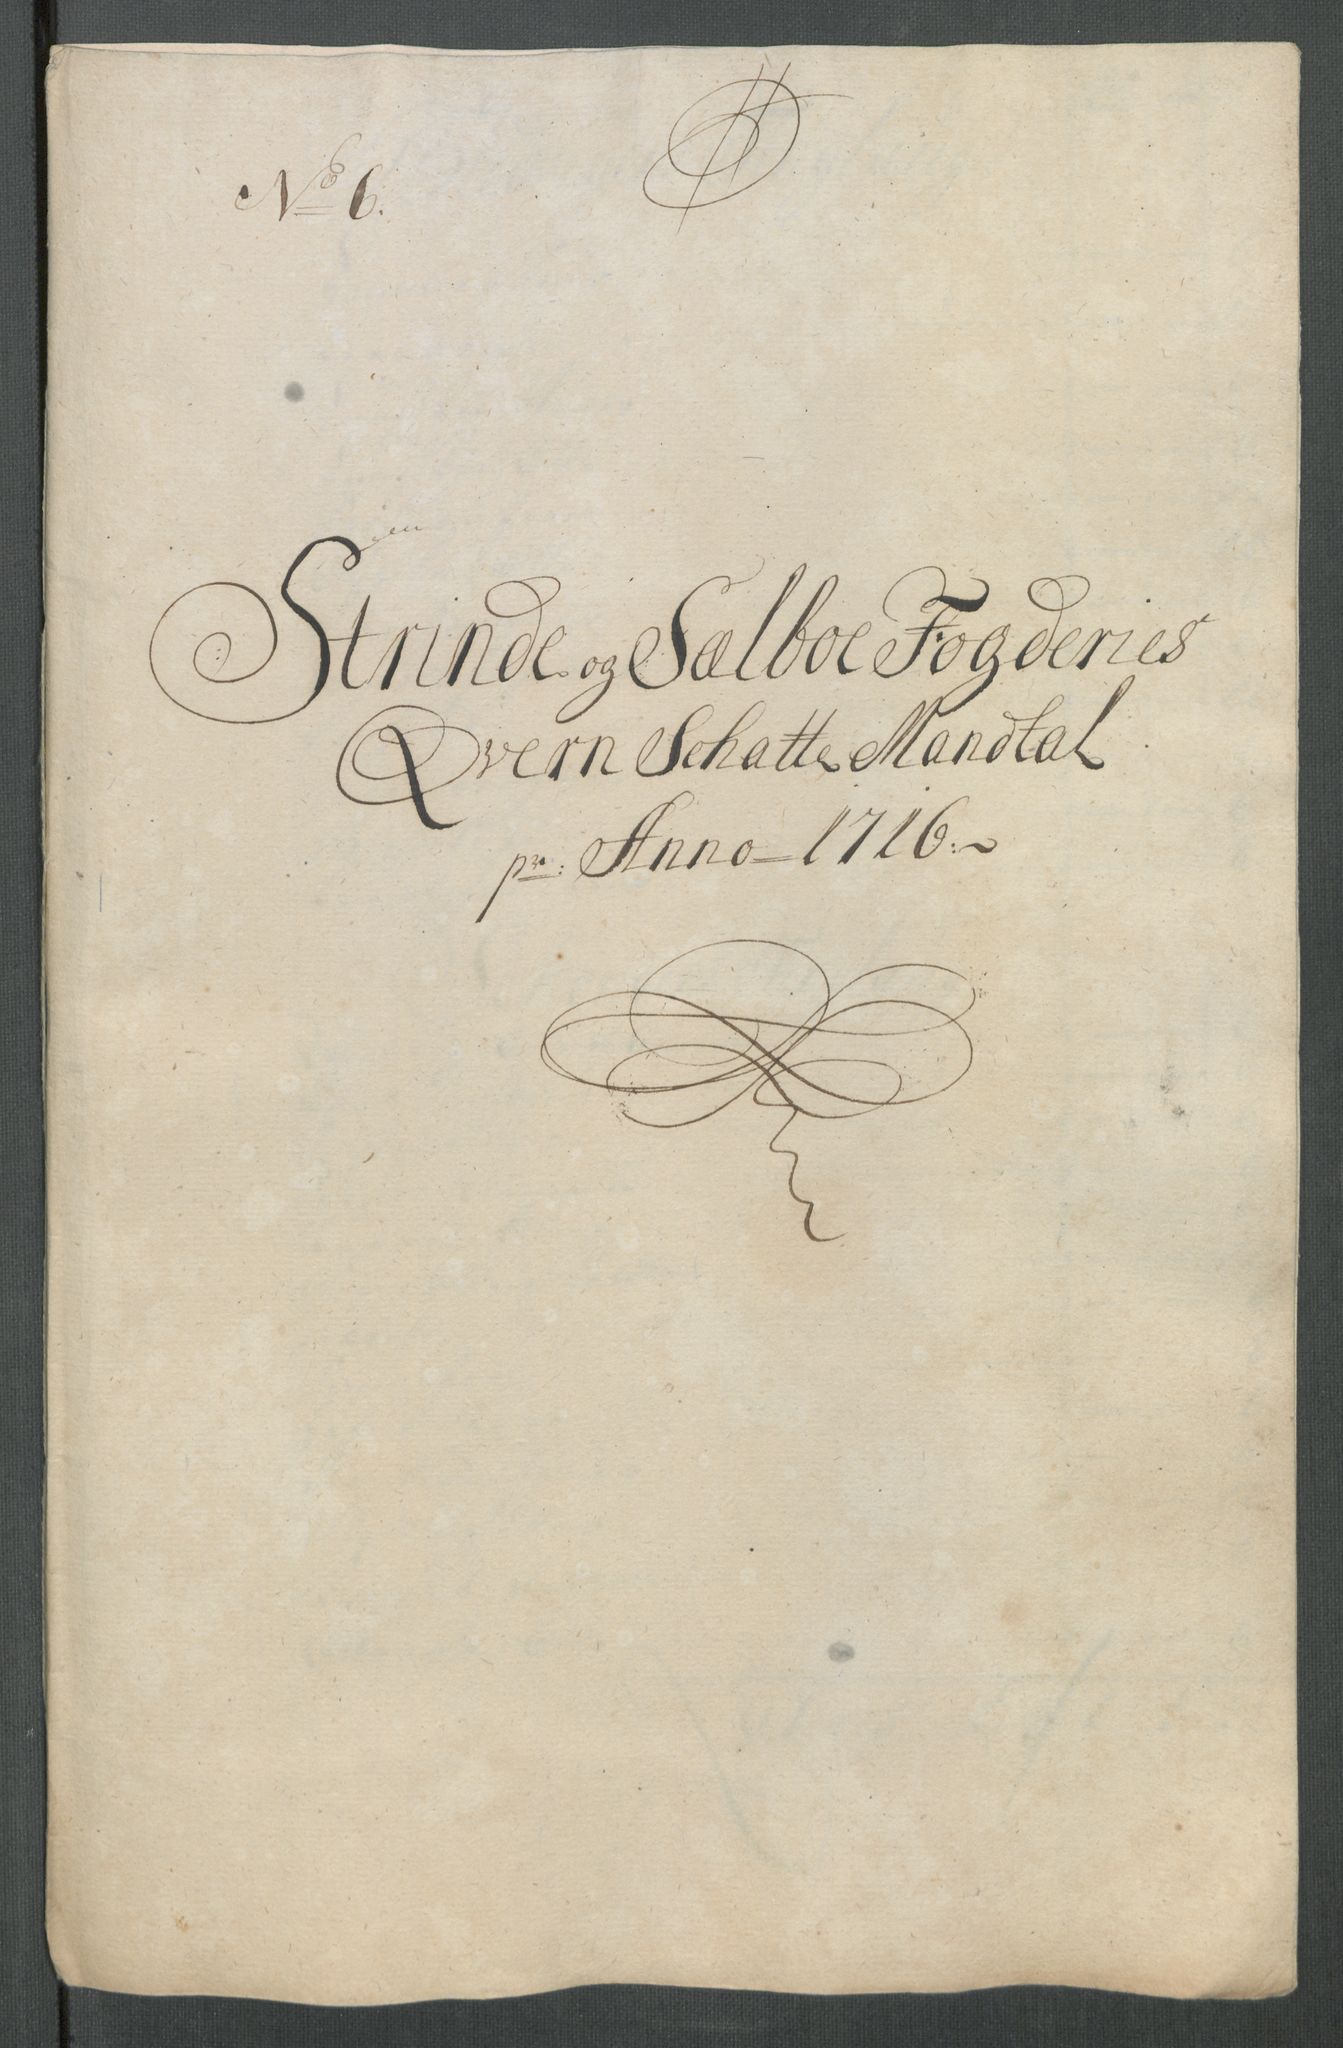 No 6.
Strinde og Sælboe Fogderies
Qvern Schatte Mandtal
pr: Anno 1716: